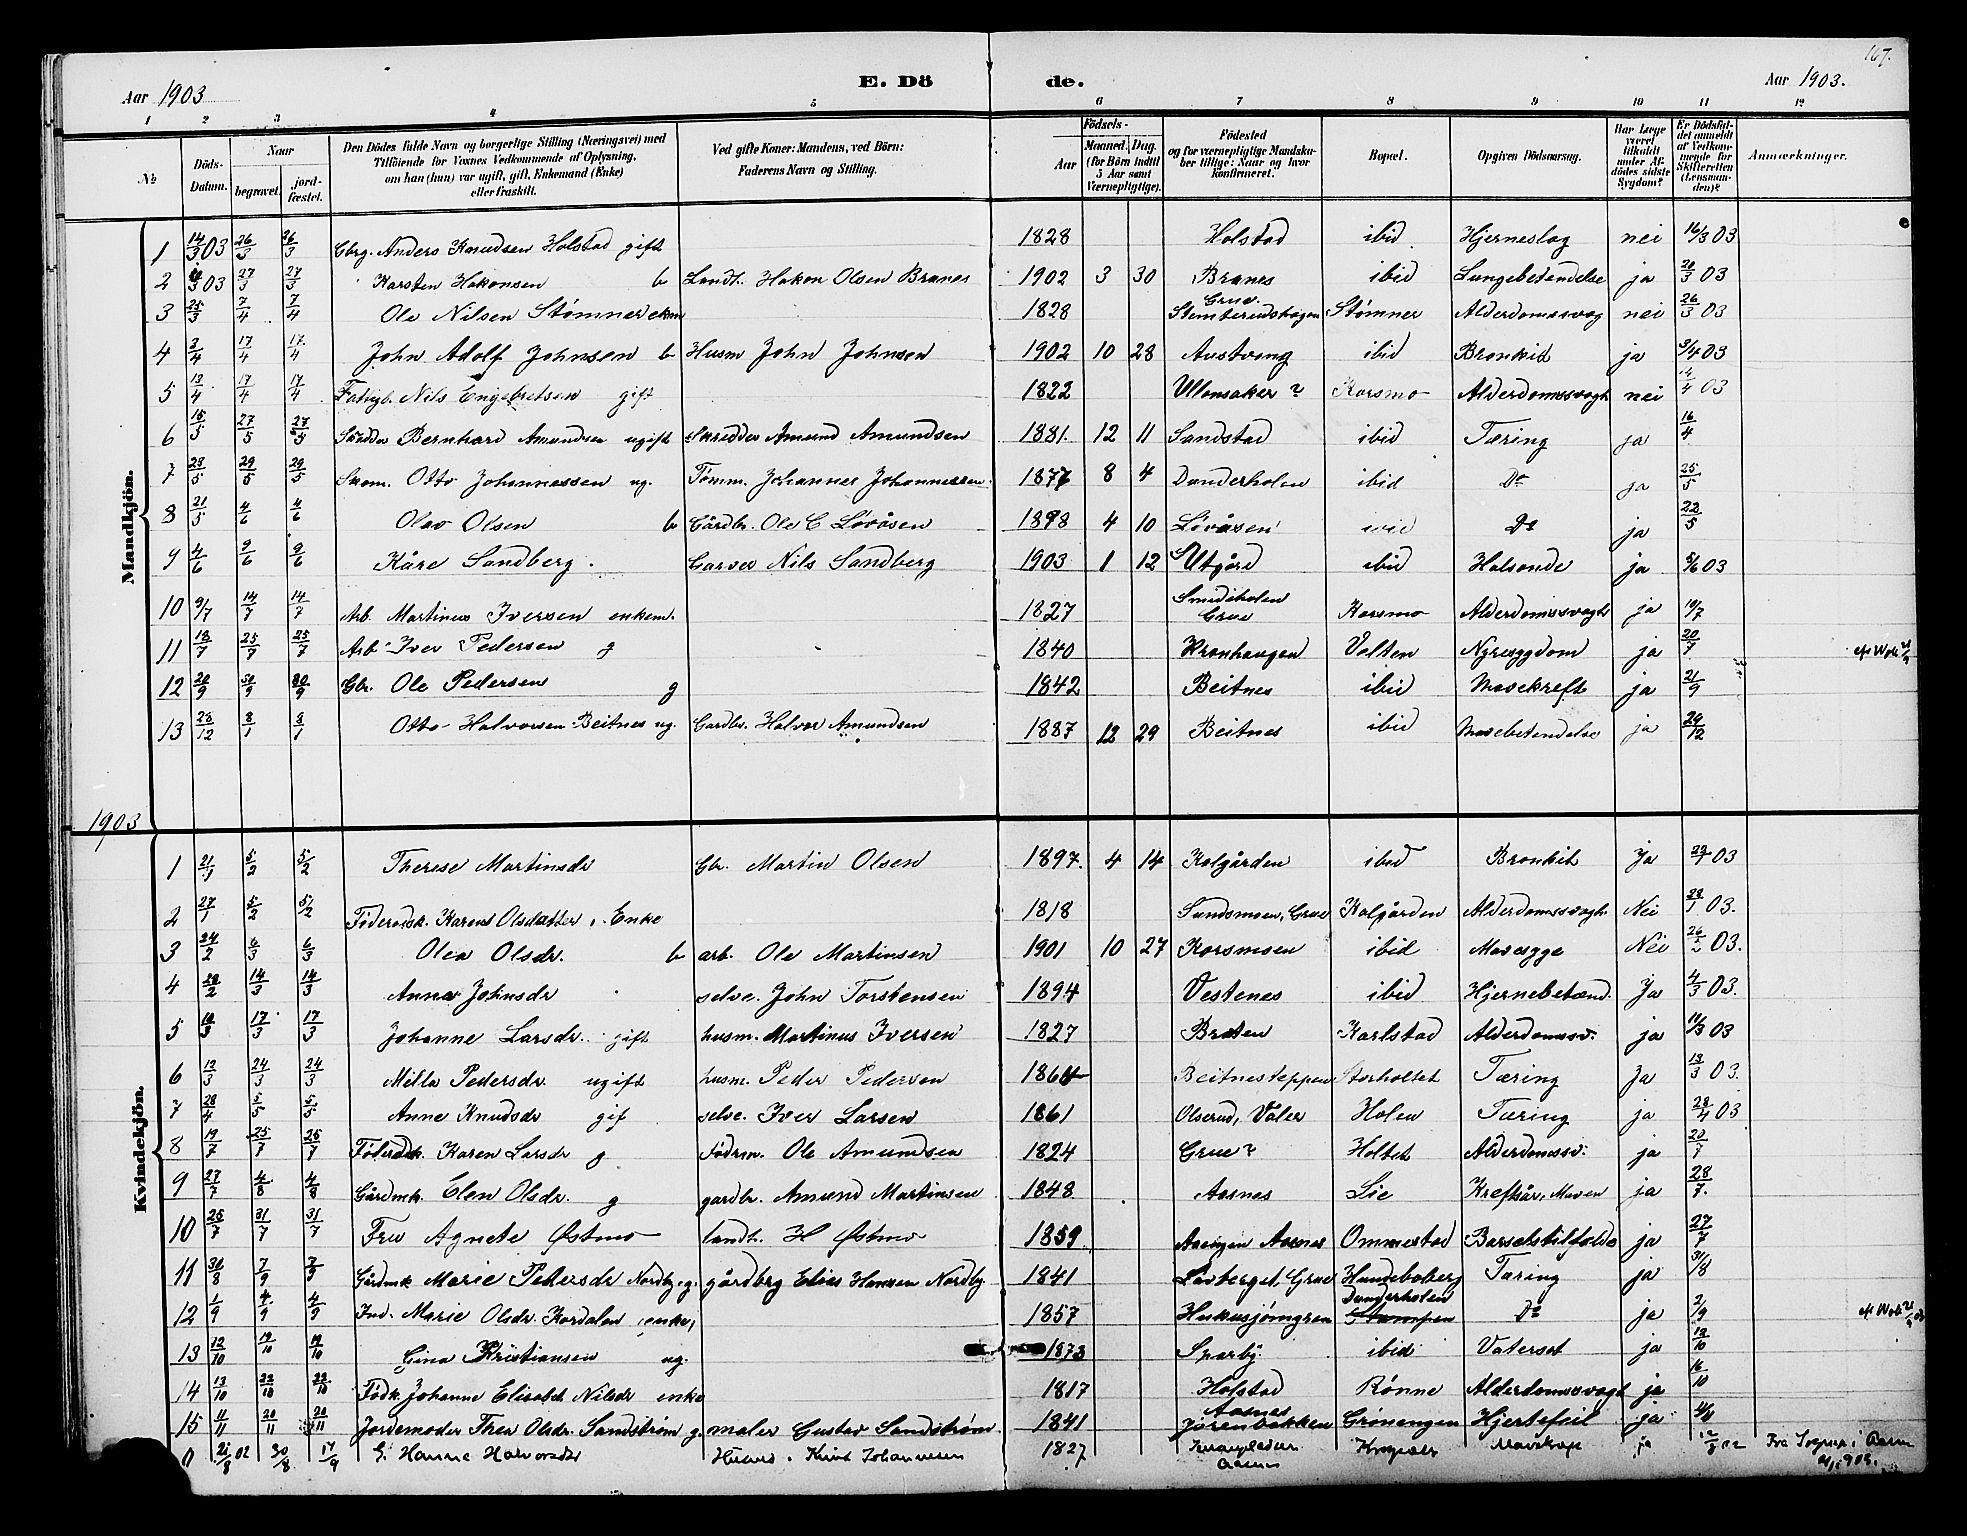 167.
Aar 1903 E. Døde. Aar 1903.
1 2 3 4 5 6 7 8 9 10 11 12
No Døds-Datum. Naar begravet. jordfæstet. Den Dødes fulde Navn og borgerlige Stilling (Næringsvei) med Tilføiende for Voxnes Vedkommende af Oplysning, om han (hun) var ugift, gift, Enkemand (Enke) eller fraskilt. Ved gifte Koner: Mandens, ved Børn: Faderens Navn og Stilling. Fødsels- Aar Maaned. Dag. (for Børn indtil 5 Aar samt Værnepligtige). Fødested og for værnepligtige Mandskaber tillige: Naar og hvor konfirmeret. Bopæl. Opgiven Dødsaarsag. Har Læge været tilkaldt under Afdødes sidste Sygdom? Er Dødsfaldet anmeldt af Vedkommende for Skifteretten (Lensmanden)? Anmærkninger.
Mandkjøn.
1 14/3 03 26/3 26/3 Gbrg. Anders Knudsen Holstad gift 1828 Holstad ibid Hjerneslag nei 16/3 03
2 /3 03 27/3 27/3 Karsten Hakonsen b Landh. Hakon Olsen Branes 1902 3 30 Branes ibid Lungebetendelse ja 20/3 03
3 25/3 7/4 7/4 Ole Nilsen Stømner ekm 1828 Grue. Stømner Alderdomssvag nei 26/3 03
4 2/4 17/4 17/4 John Adolf Johnsen b Husm John Johnsen 1902 10 28 Austvang ibid Bronkit ja 3/4 03
5 13/4 17/4 17/4 Fattigl. Nils Engebretsen gift 1822 Ullensaker ? Korsmo Alderdomssvagh nei 14/4 03
6 15/5 27/5 27/5 Skredder Bernhard Amundsen ugift Skredder Amund Amundsen 1881. 12 11 Sandstad ibid Tæring ja 16/4
7 23/5 29/5 29/5 Skom. Otto Johannessen ug. Tømm. Johannes Johannessen. 1877 8 4 Dunderholen ibid Do ja 25/5
8 21/5 4/6 4/6 Olav Olsen b Gårdbr. Ole C Løvåsen 1898 4 10 Løvåsen ibid Do ja 22/5
9 4/6 9/6 9/6 Kåre Sandberg. Garver Nils Sandberg 1903 1 12 Utgård ibid Halsonde ja 5/6 03
10 9/7 14/7 14/7 Arb. Martinus Iversen enkem. 1827 Smedsholen Grue Korsmo Alderdomssvagh ja 10/7
11 18/7 25/7 25/7 Arb. Iver Pedersen g 1840 Kronhaugen Velten Nyresygdom ja 20/7
12 20/9 30/9 30/9 Gbr. Ole Pedersen g 1842 Beitnes ibid Mavekreft ja 21/9
13 28/12 8/1 8/1 Otto Halvorsen Beitnes ug. Gardbr. Halvor Amundsen 1887 12 29 Beitnes ibid Mavebetendelse ja 29/12
1903
Kvindekjøn.
1 21/1 5/2 5/2 Therese Martinsdr Gbr. Martin Olsen 1897. 4 14 Kalgården ibid Bronkit Ja 22/1 03
2 27/1 5/2 5/2 Føderådsk. Karen Olsdatter, Enke 1818 Sundsmoen, Grue Kalgården Alderdomssvagh. Nei 28/1 03.
3 24/2 6/3 6/3 Olea Olsdr. b arb. Ole Martinsen 1901 10 27 Korsmoen ibid Mavesyge Nei 26/2 03.
4 28/2 14/3 14/3 Anna Johnsdr selve. John Torstensen 1894 Vestenes ibid Hjernebetænd. Ja 4/3 03.
5 10/3 17/3 17/3 Johanne Larsdr. gift husm. Martinus Iversen 1827 Braten Karlstad Alderdomssv. ja 11/3 03
6 12/3 24/3 24/3 Milla Pedersdr. ugift husm. Peder Pedersen 1864 Beitnesteppen Storholtet Tæring Ja 13/3 03.
7 28/4 5/5 5/5 Anne Knudsdr gif selve. Iver Larsen 1861 Olserud, Våler Holen Tæring ja 28/4 03
8 19/7 25/7 25/7 Føderådk. Karen Larsdr g Fødrm. Ole Amundsen 1824 Grue? Holtet Alderdomssv. ja 20/7
9 27/7 4/8 4/8 Gårdmk. Elen Olsdr. g gardbr. Amund Martinsen 1848 Aasnes Lie Kreftsår, Maven ja 28/7.
10 25/7 31/7 31/7 Fru Agnete Østmo landh. H Østmo 1859 Aasnes Ommestad Barselstilfælde ja 27/7
11 30/8 7/9 7/9 Gårdmk Marie Pedersdr Nordby g. gårdbrg Elias Hansen Nordby. 1841 Løvberget, Grue Hundeboberg Tæring ja 31/8
12 1/9 4/9 4/9 Ind. Marie Olsdr. Kordalen, enke, 1857 Huskusjøingren Dunderholen Do ja 2/9
13 12/10 19/10 19/10 Gina Kristiansen ug. 1873 Sparby ibid Vatersot ja 12/10
14 13/10 22/10 22/10 Fødk. Johanne Elisabet Nilsdr enke 1817 Holstad Rønne Alderdomssvagt ja 16/10
15 11/11 20/11 20/11 Jordemoder Thea Olsdr. Sandstrøm g. maler Gustav Sandstrøm 1841 Aasnes Jørenbakken Grønengen Hjertefeil ja
0 21/8 02 30/8 17/9 G. Hanna Halvorsdr Husm. Knut Johannesen 1827 Aasnes ja 12/8 02 Fra i 1903.